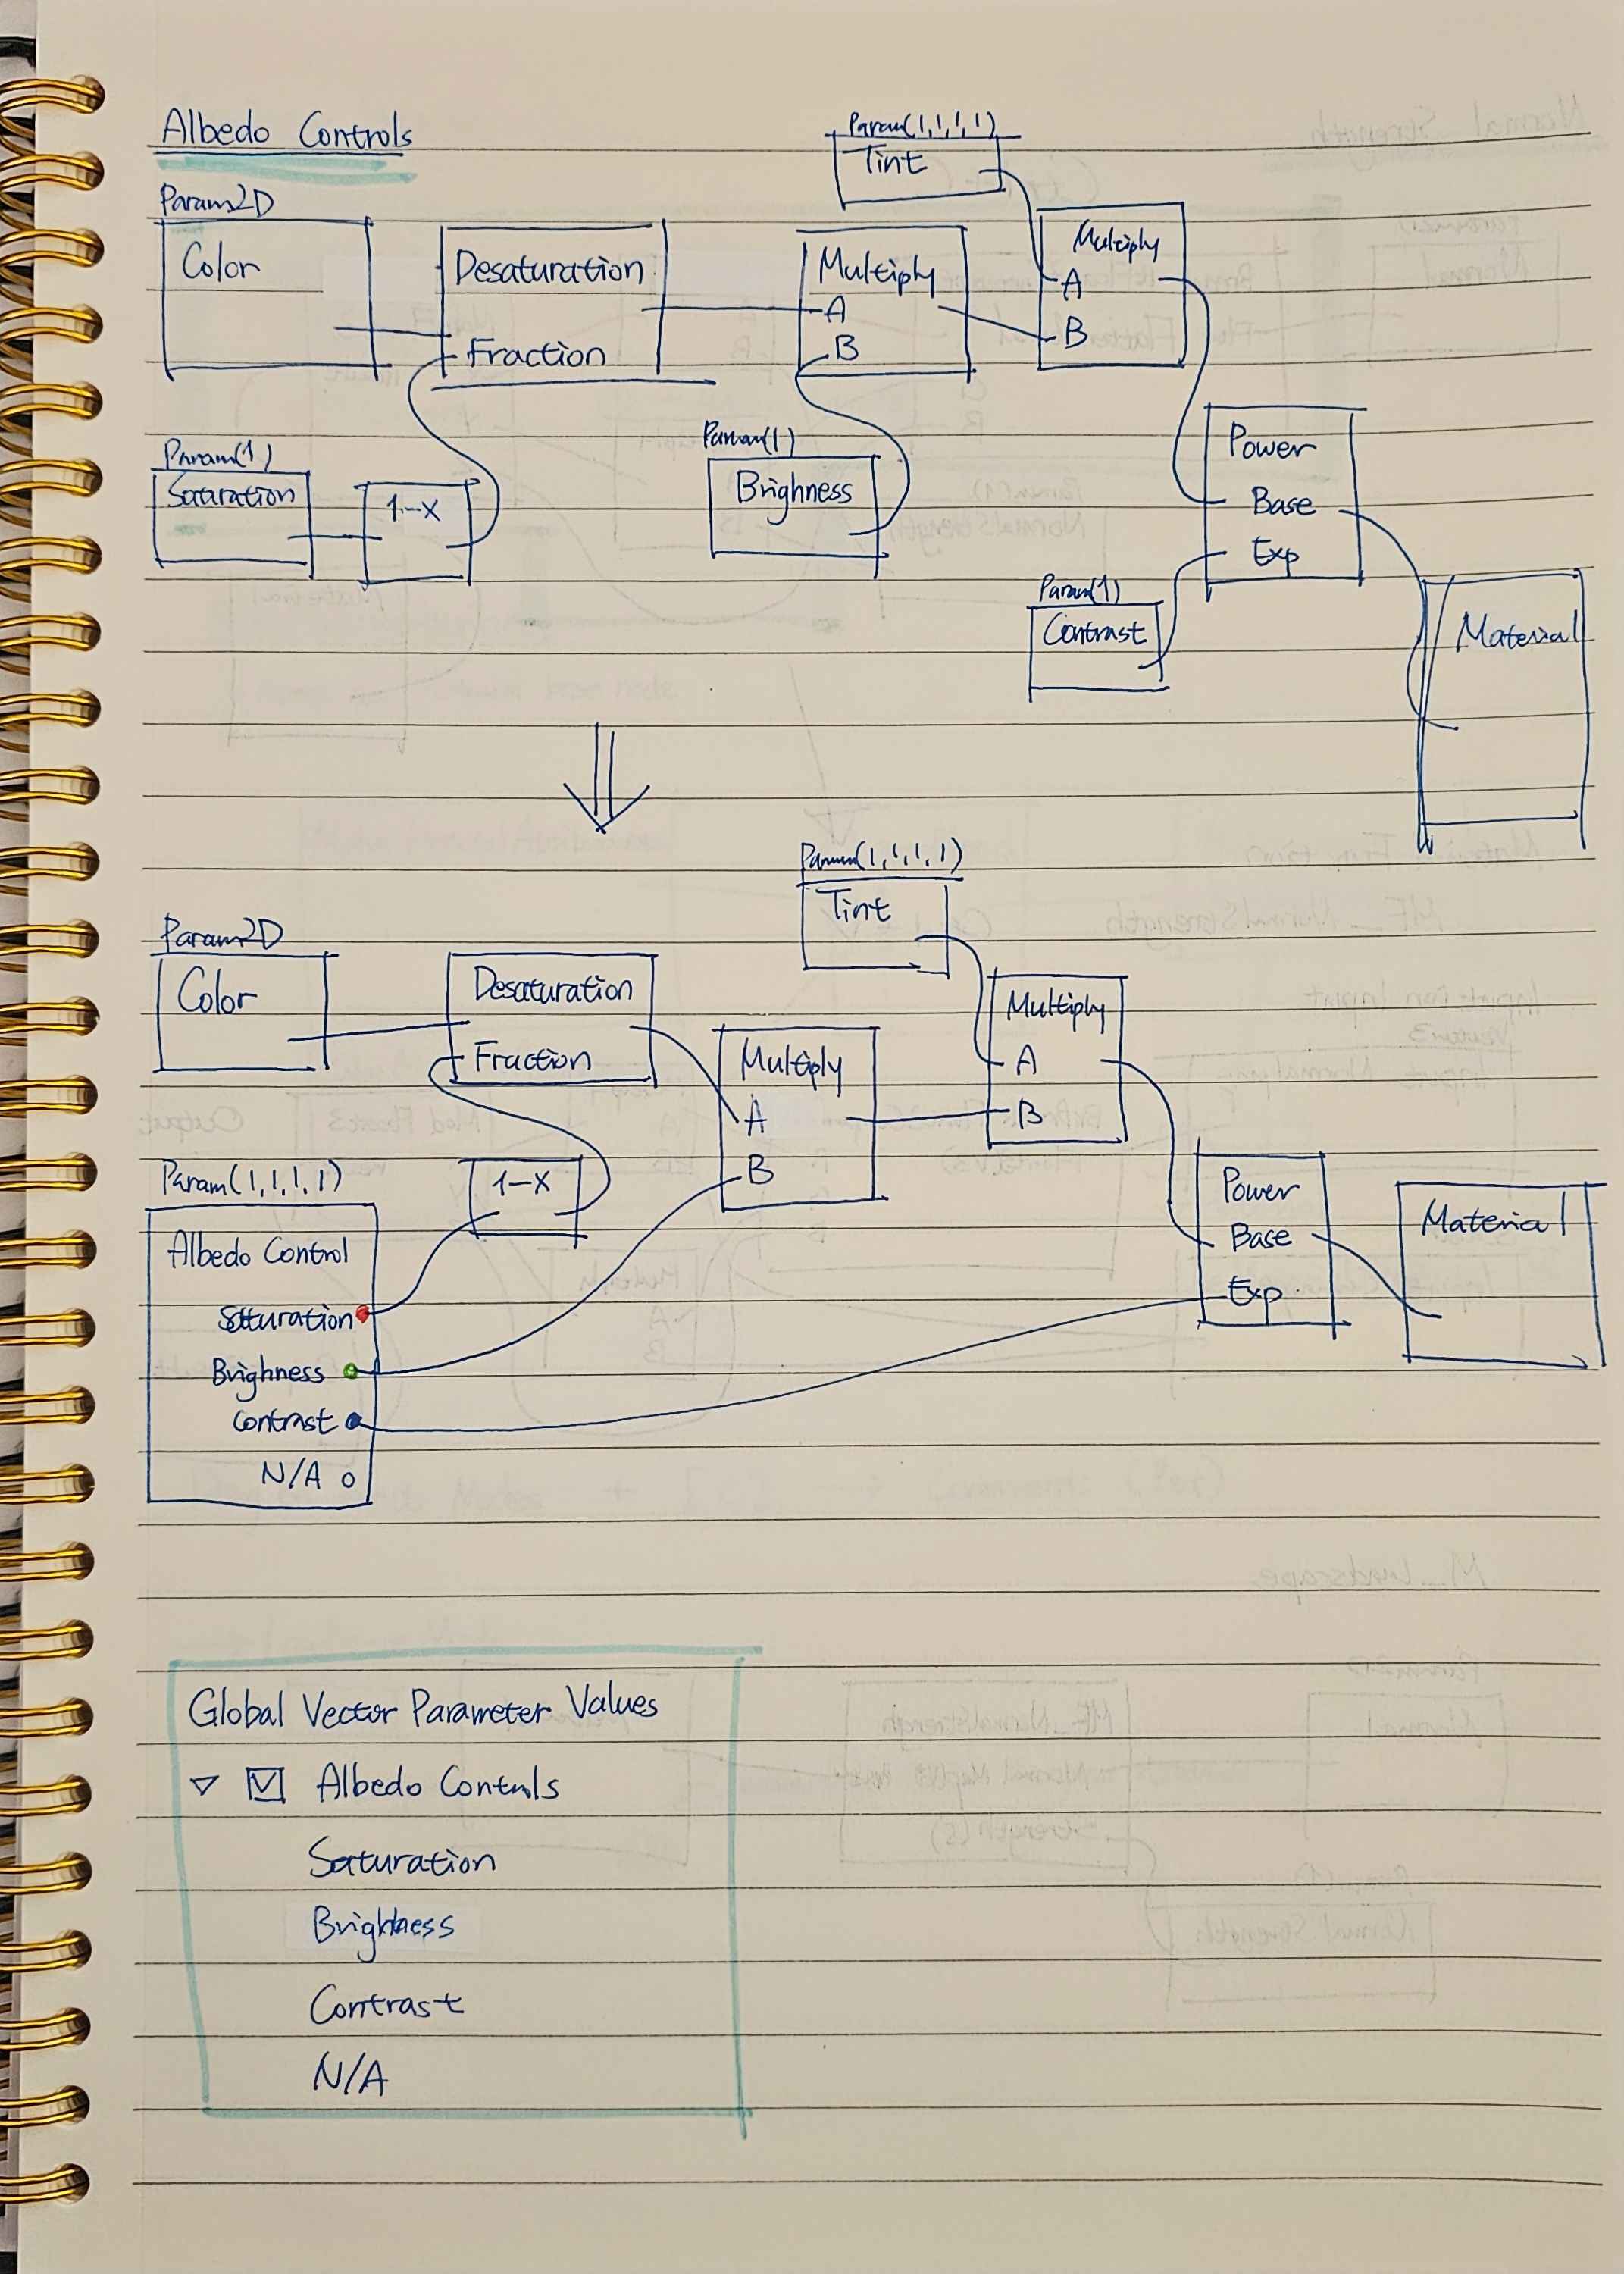 Albedo Controls
Param(1,1,1,1)
Tint
Param2D
Color
Desaturation
Fraction
Multiply
A
B
Multiply
A
B
Param(1)
Saturation
1-X
Param(1)
Brighness
Power
Base
Exp
Param(1)
Contrast
Material
Param(1,1,1,1)
Tint
Param2D
Color
Desaturation
Fraction
Multiply
A
B
Multiply
A
B
Param(1,1,1,1)
1-X
Albedo Control
Saturation
Brighness
Contrast
N/A
Power
Base
Exp
Material
Global Vector Parameter Values
Albedo Controls
Saturation
Brightness
Contrast
N/A